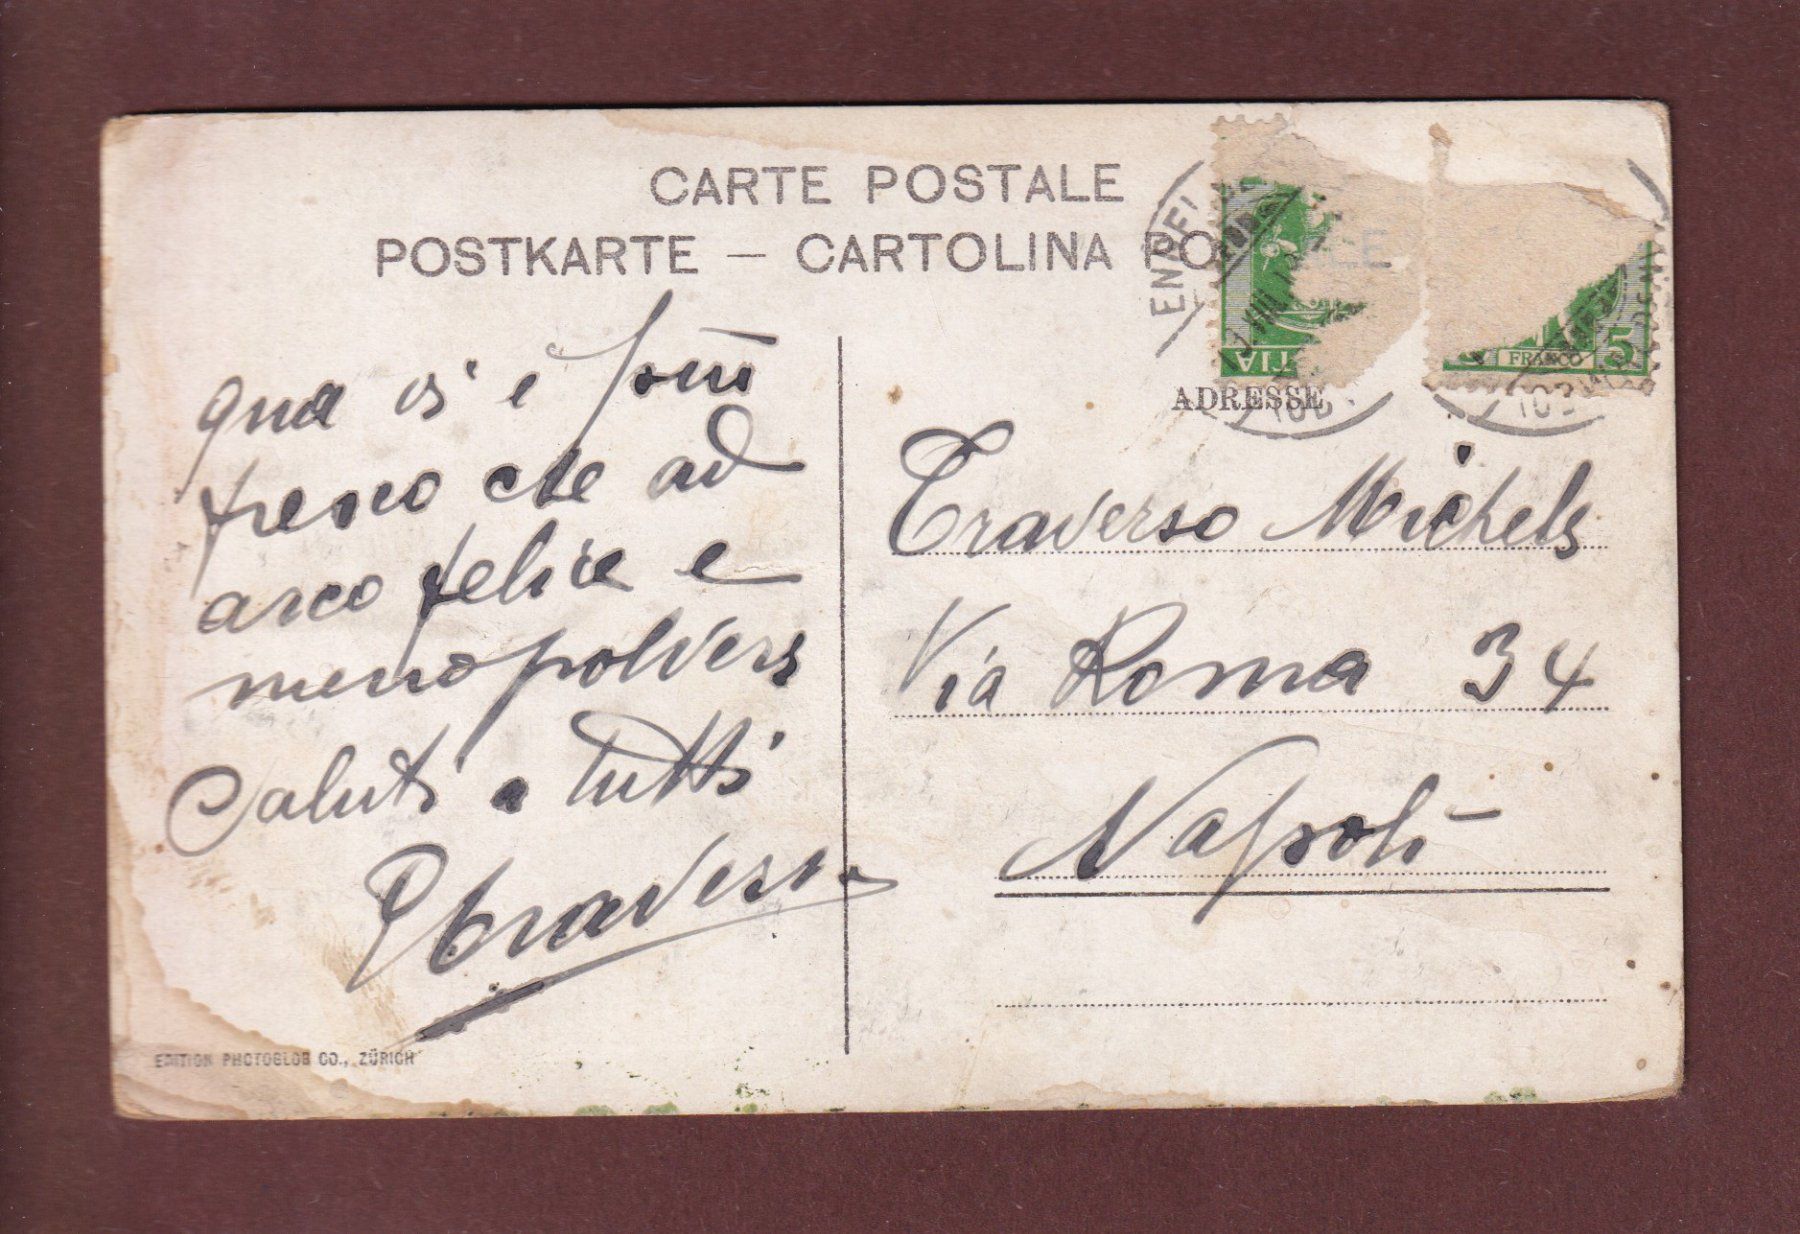 CARTE POSTALE
POSTKARTE — CARTOLINA PO
ADRESSE
FRANCO 5
qua ci è
fresco che ad
arco felice e
meno polvere
Saluti a tutti
Traverso Michele
Via Roma 34
Napoli
EDITION PHOTOGLOB CO., ZÜRICH